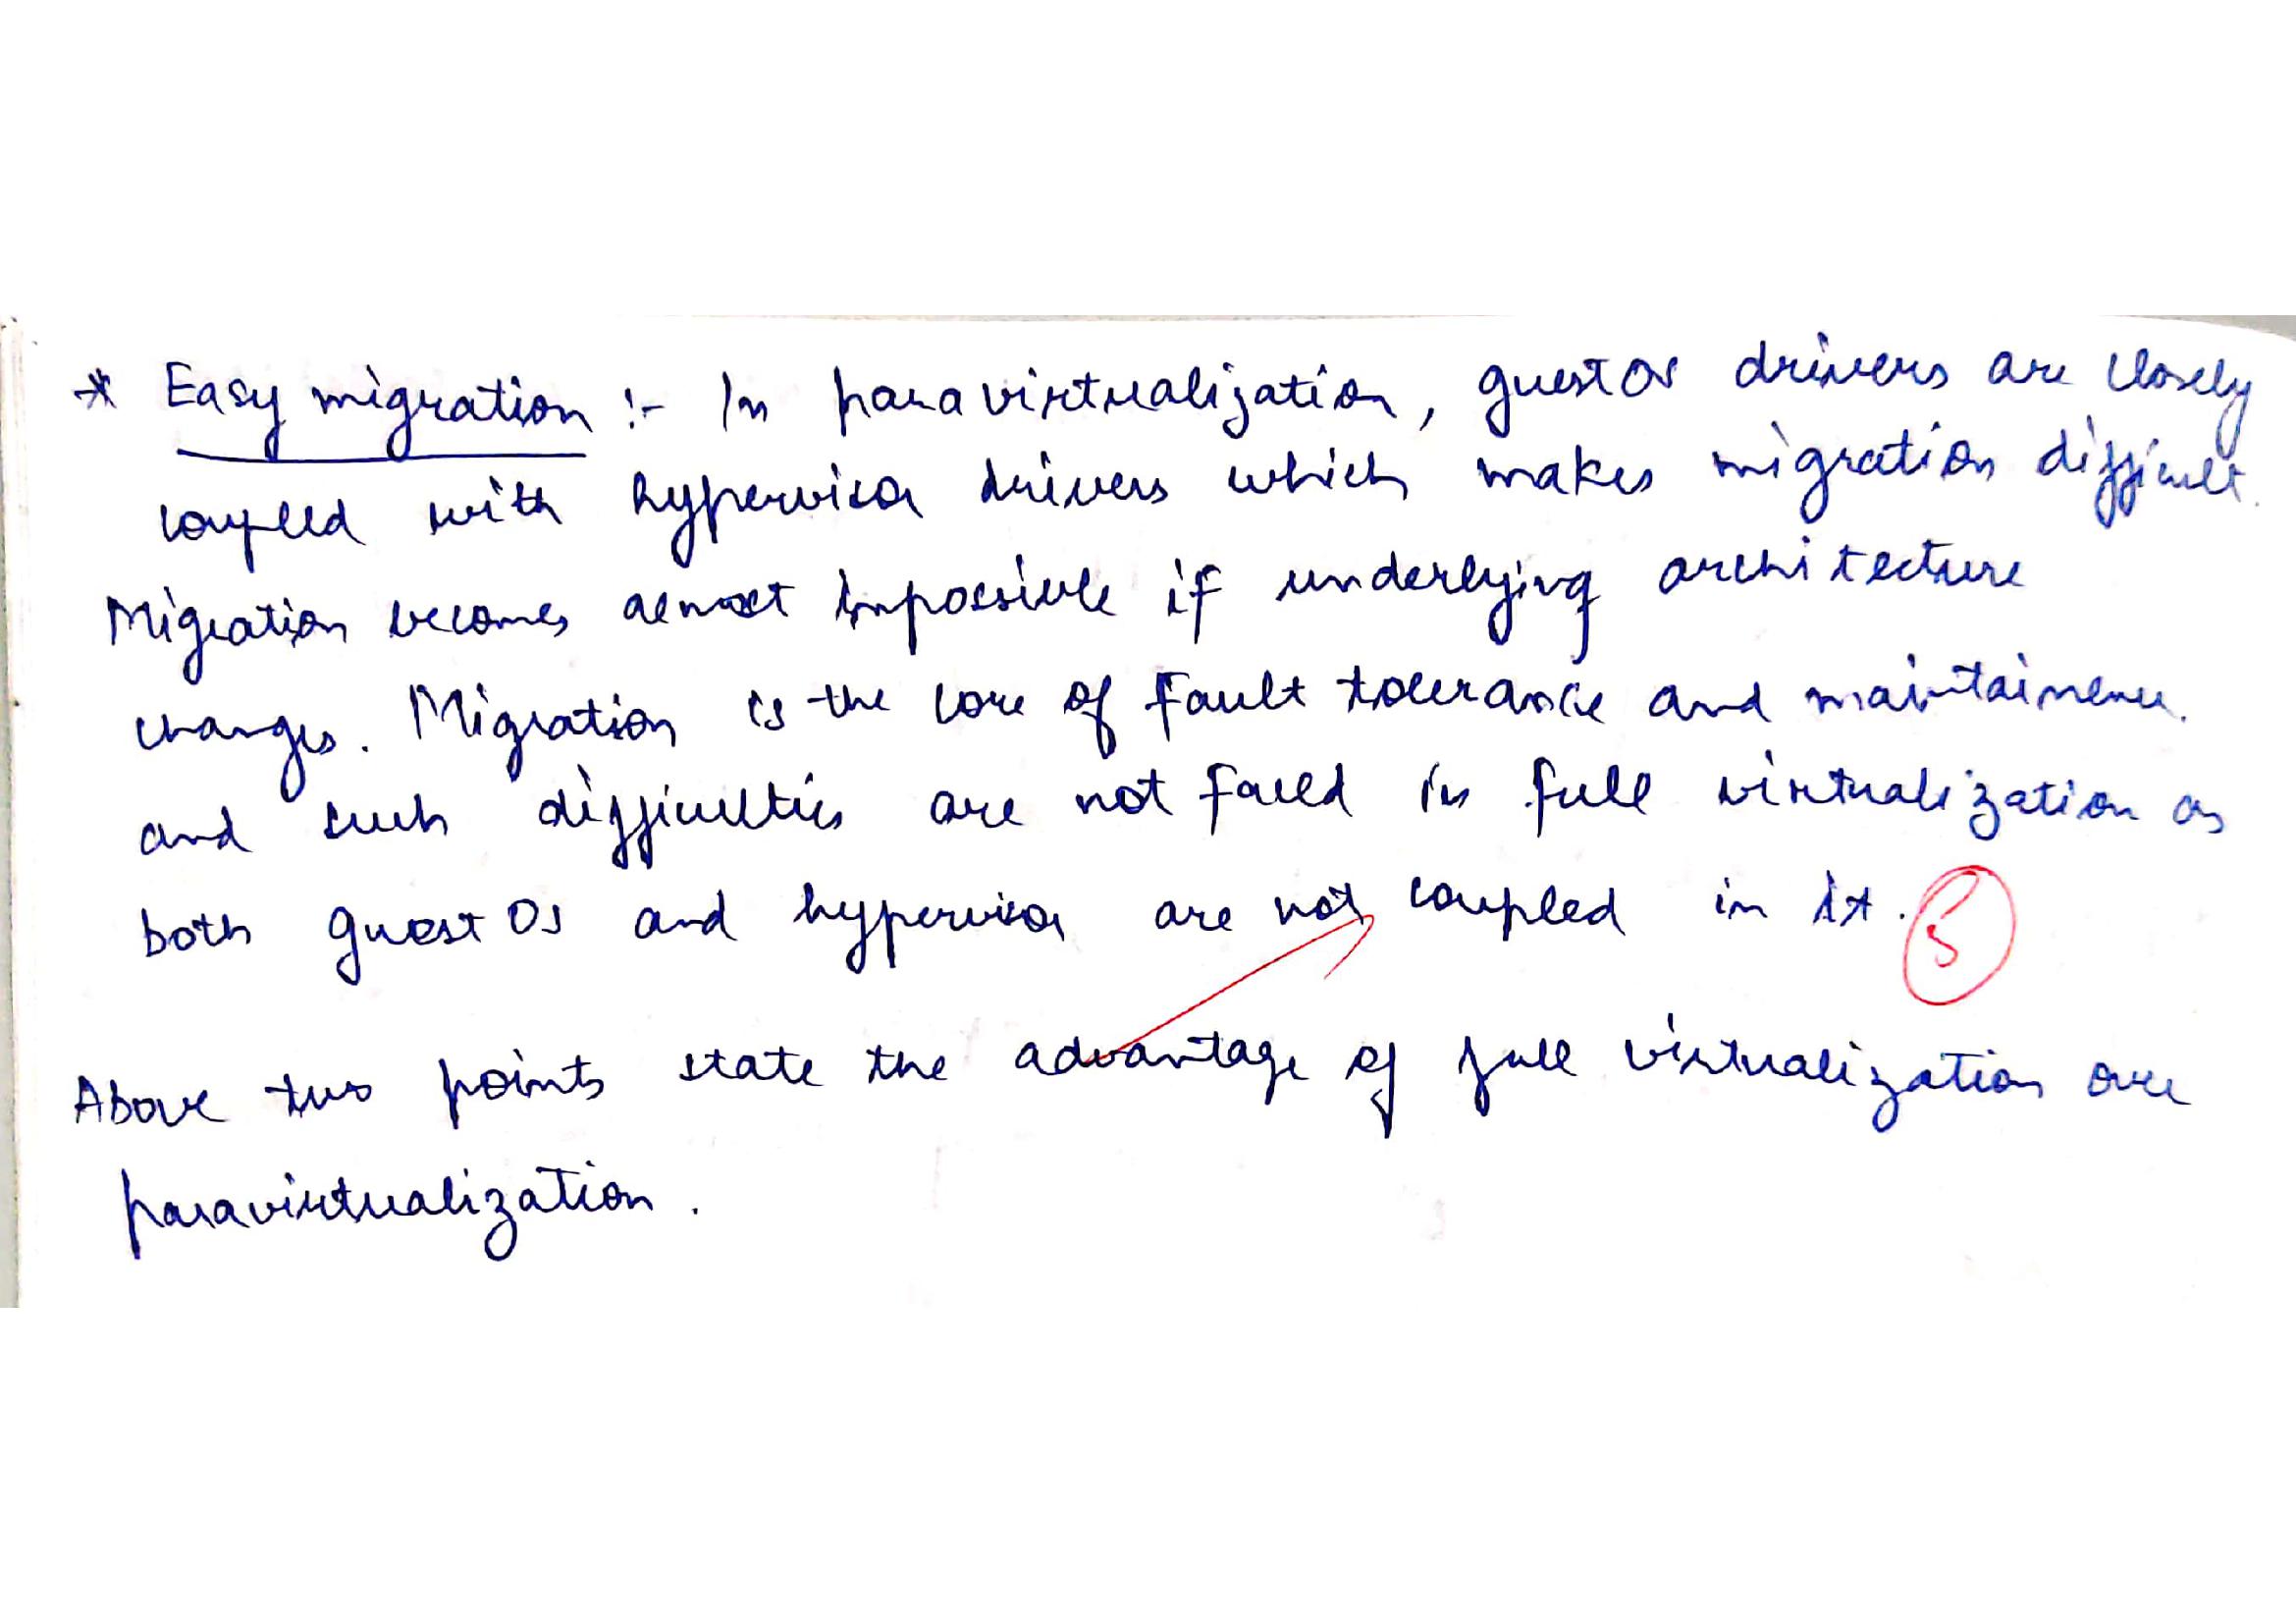 * Easy migration :- In paravirtualization, guest OS drivers are closely
coupled with hypervisor drivers which makes migration difficult.
Migration becomes almost impossible if underlying architecture
changes. Migration is the core of fault tolerance and maintainence.
and such difficulties are not faced in full virtualization as
both guest OS and hypervisor are not coupled in it. 5
Above two points state the advantage of full virtualization over
paravirtualization.